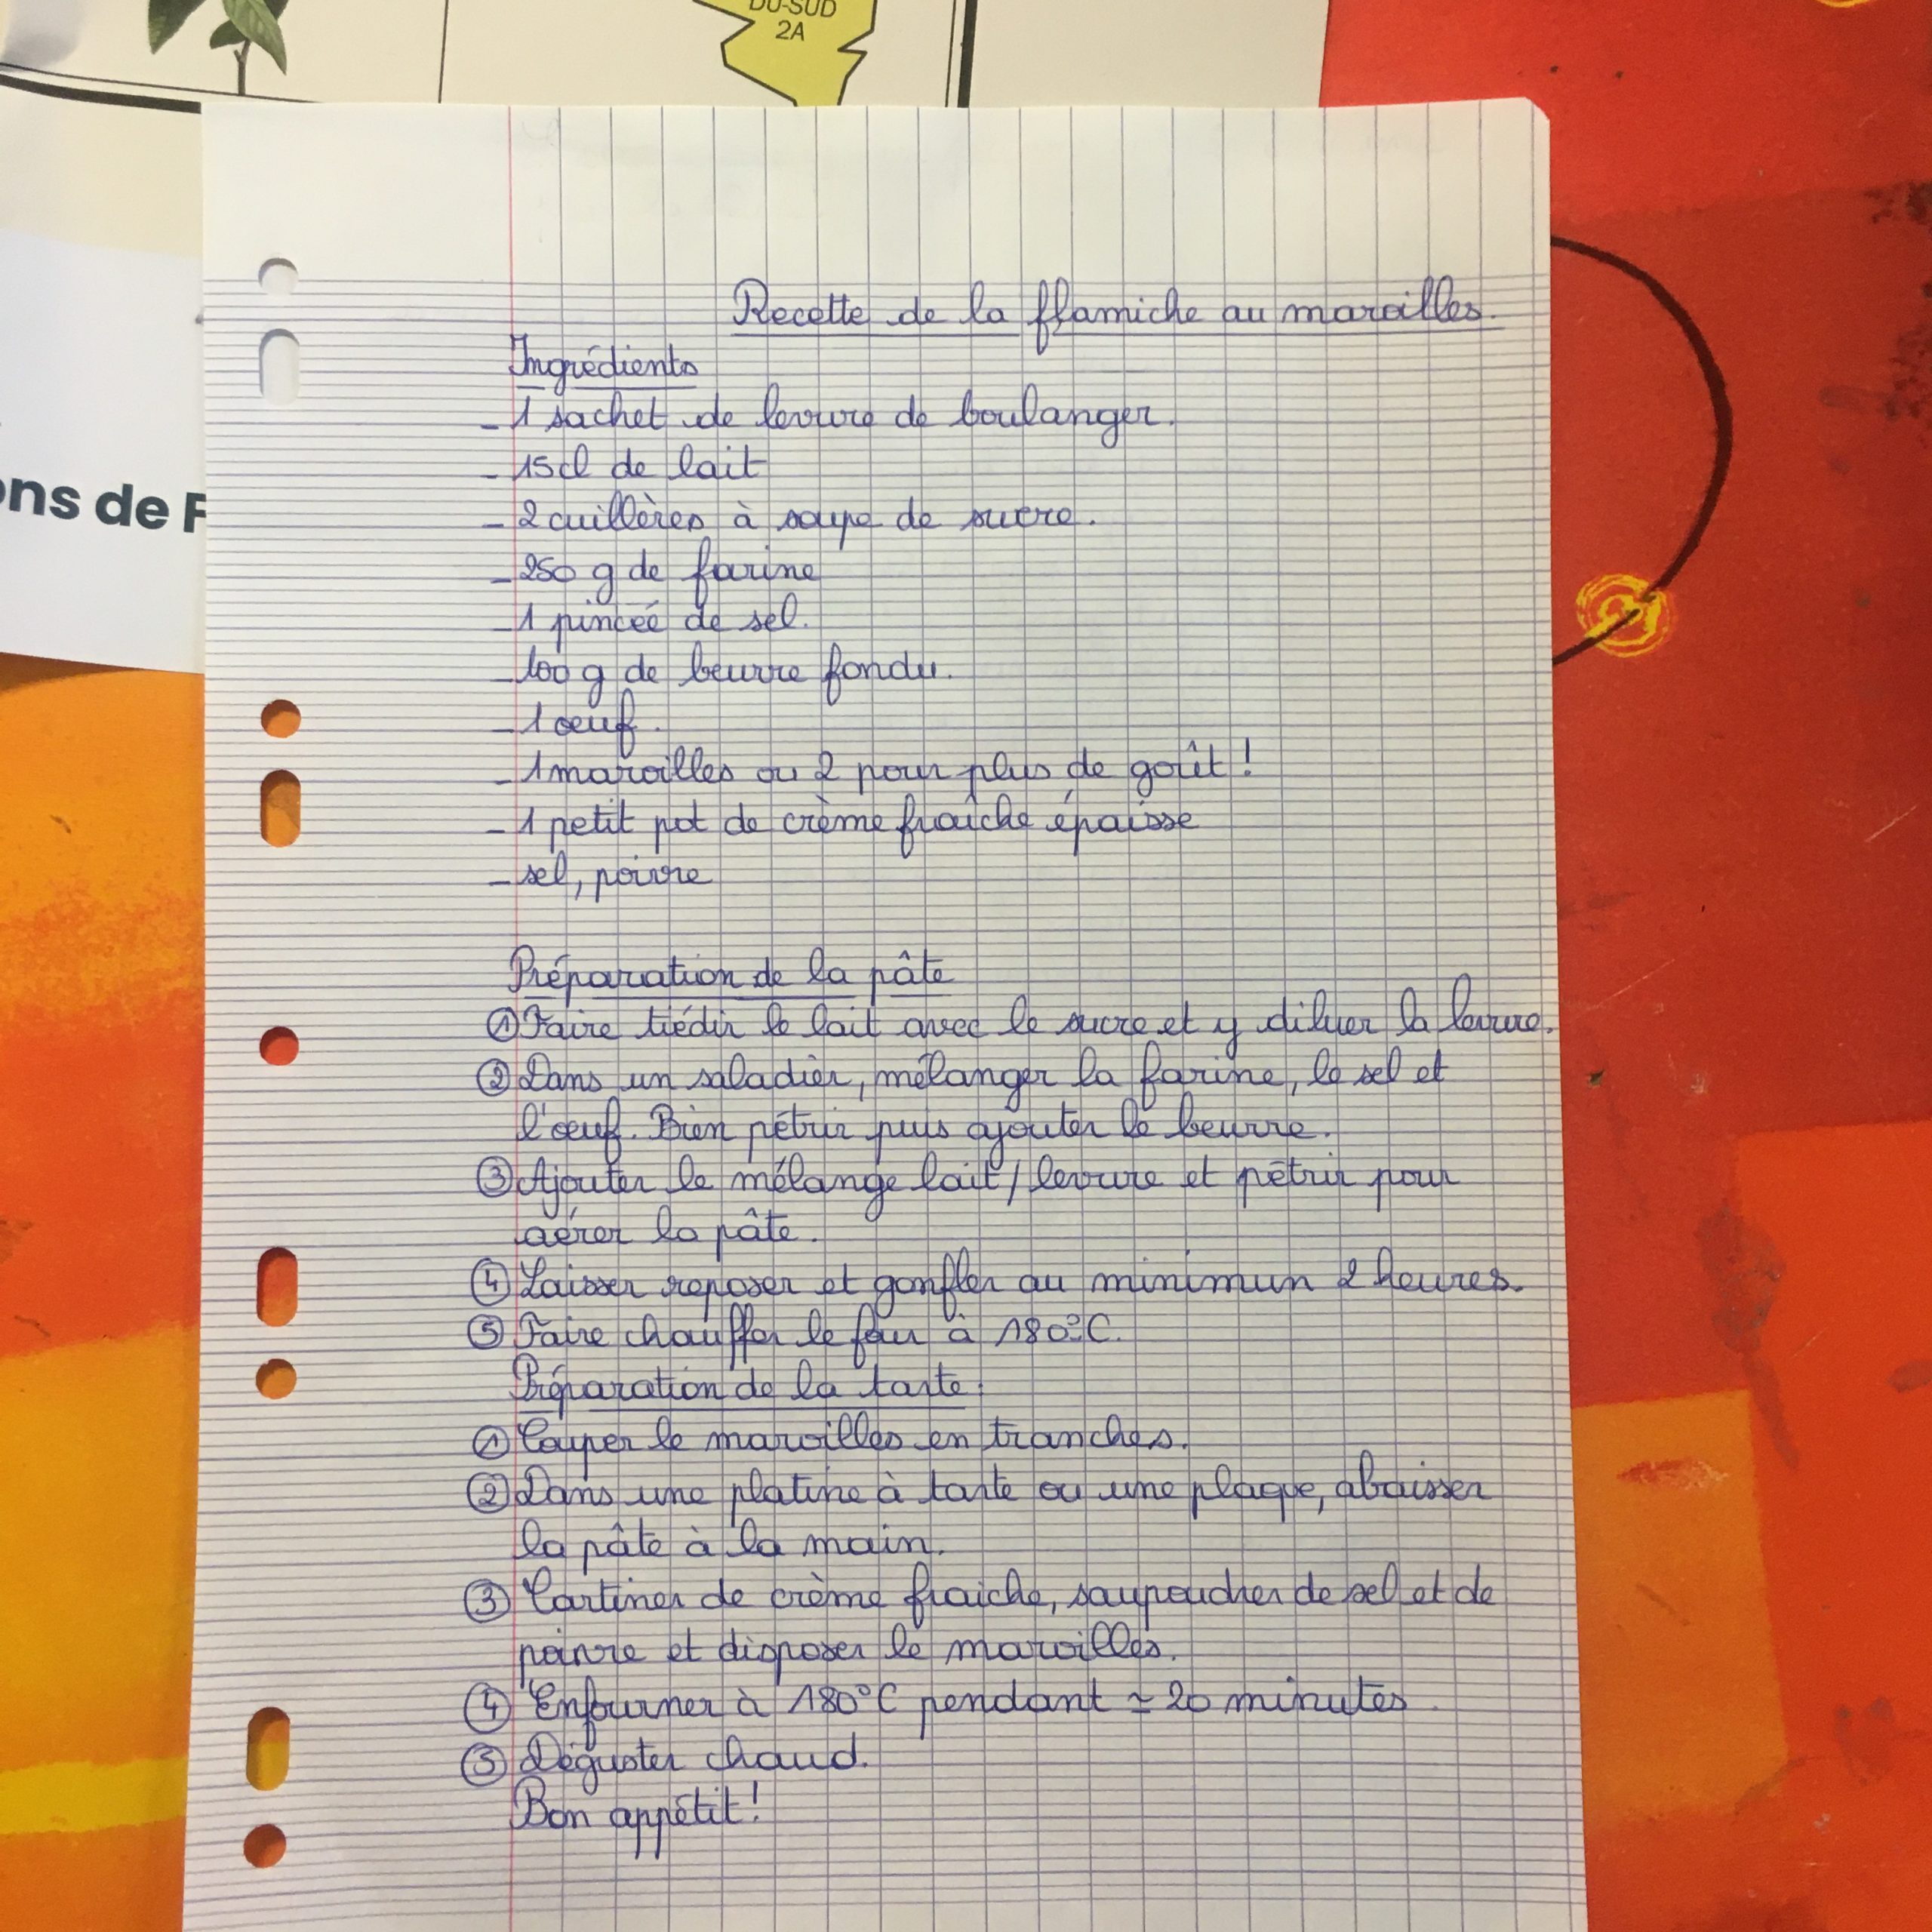 DU-SUD
2A
ons de F
Recette de la flamiche au maroilles.
Ingrédients
- 1 sachet de levure de boulanger.
- 15cl de lait
- 2 cuillères à soupe de sucre.
- 250 g de farine
- 1 pincée de sel.
- 100 g de beurre fondu.
- 1 œuf.
- 1 maroilles ou 2 pour plus de goût !
- 1 petit pot de crème fraîche épaisse
- sel, poivre
Préparation de la pâte
① Faire tiédir le lait avec le sucre et y diluer la levure.
② Dans un saladier, mélanger la farine, le sel et
l'œuf. Bien pétrir puis ajouter le beurre.
③ Ajouter le mélange lait / levure et pétrir pour
aérer la pâte.
④ Laisser reposer et gonfler au minimun 2 heures.
⑤ Faire chauffer le four à 180°C.
Préparation de la tarte.
① Couper le maroilles en tranches.
② Dans une platine à tarte ou une plaque, abaisser
la pâte à la main.
③ Tartiner de crème fraiche, saupoudrer de sel et de
poivre et disposer le maroilles.
④ Enfourner à 180°C pendant ≃ 20 minutes.
⑤ Déguster chaud.
Bon appétit !